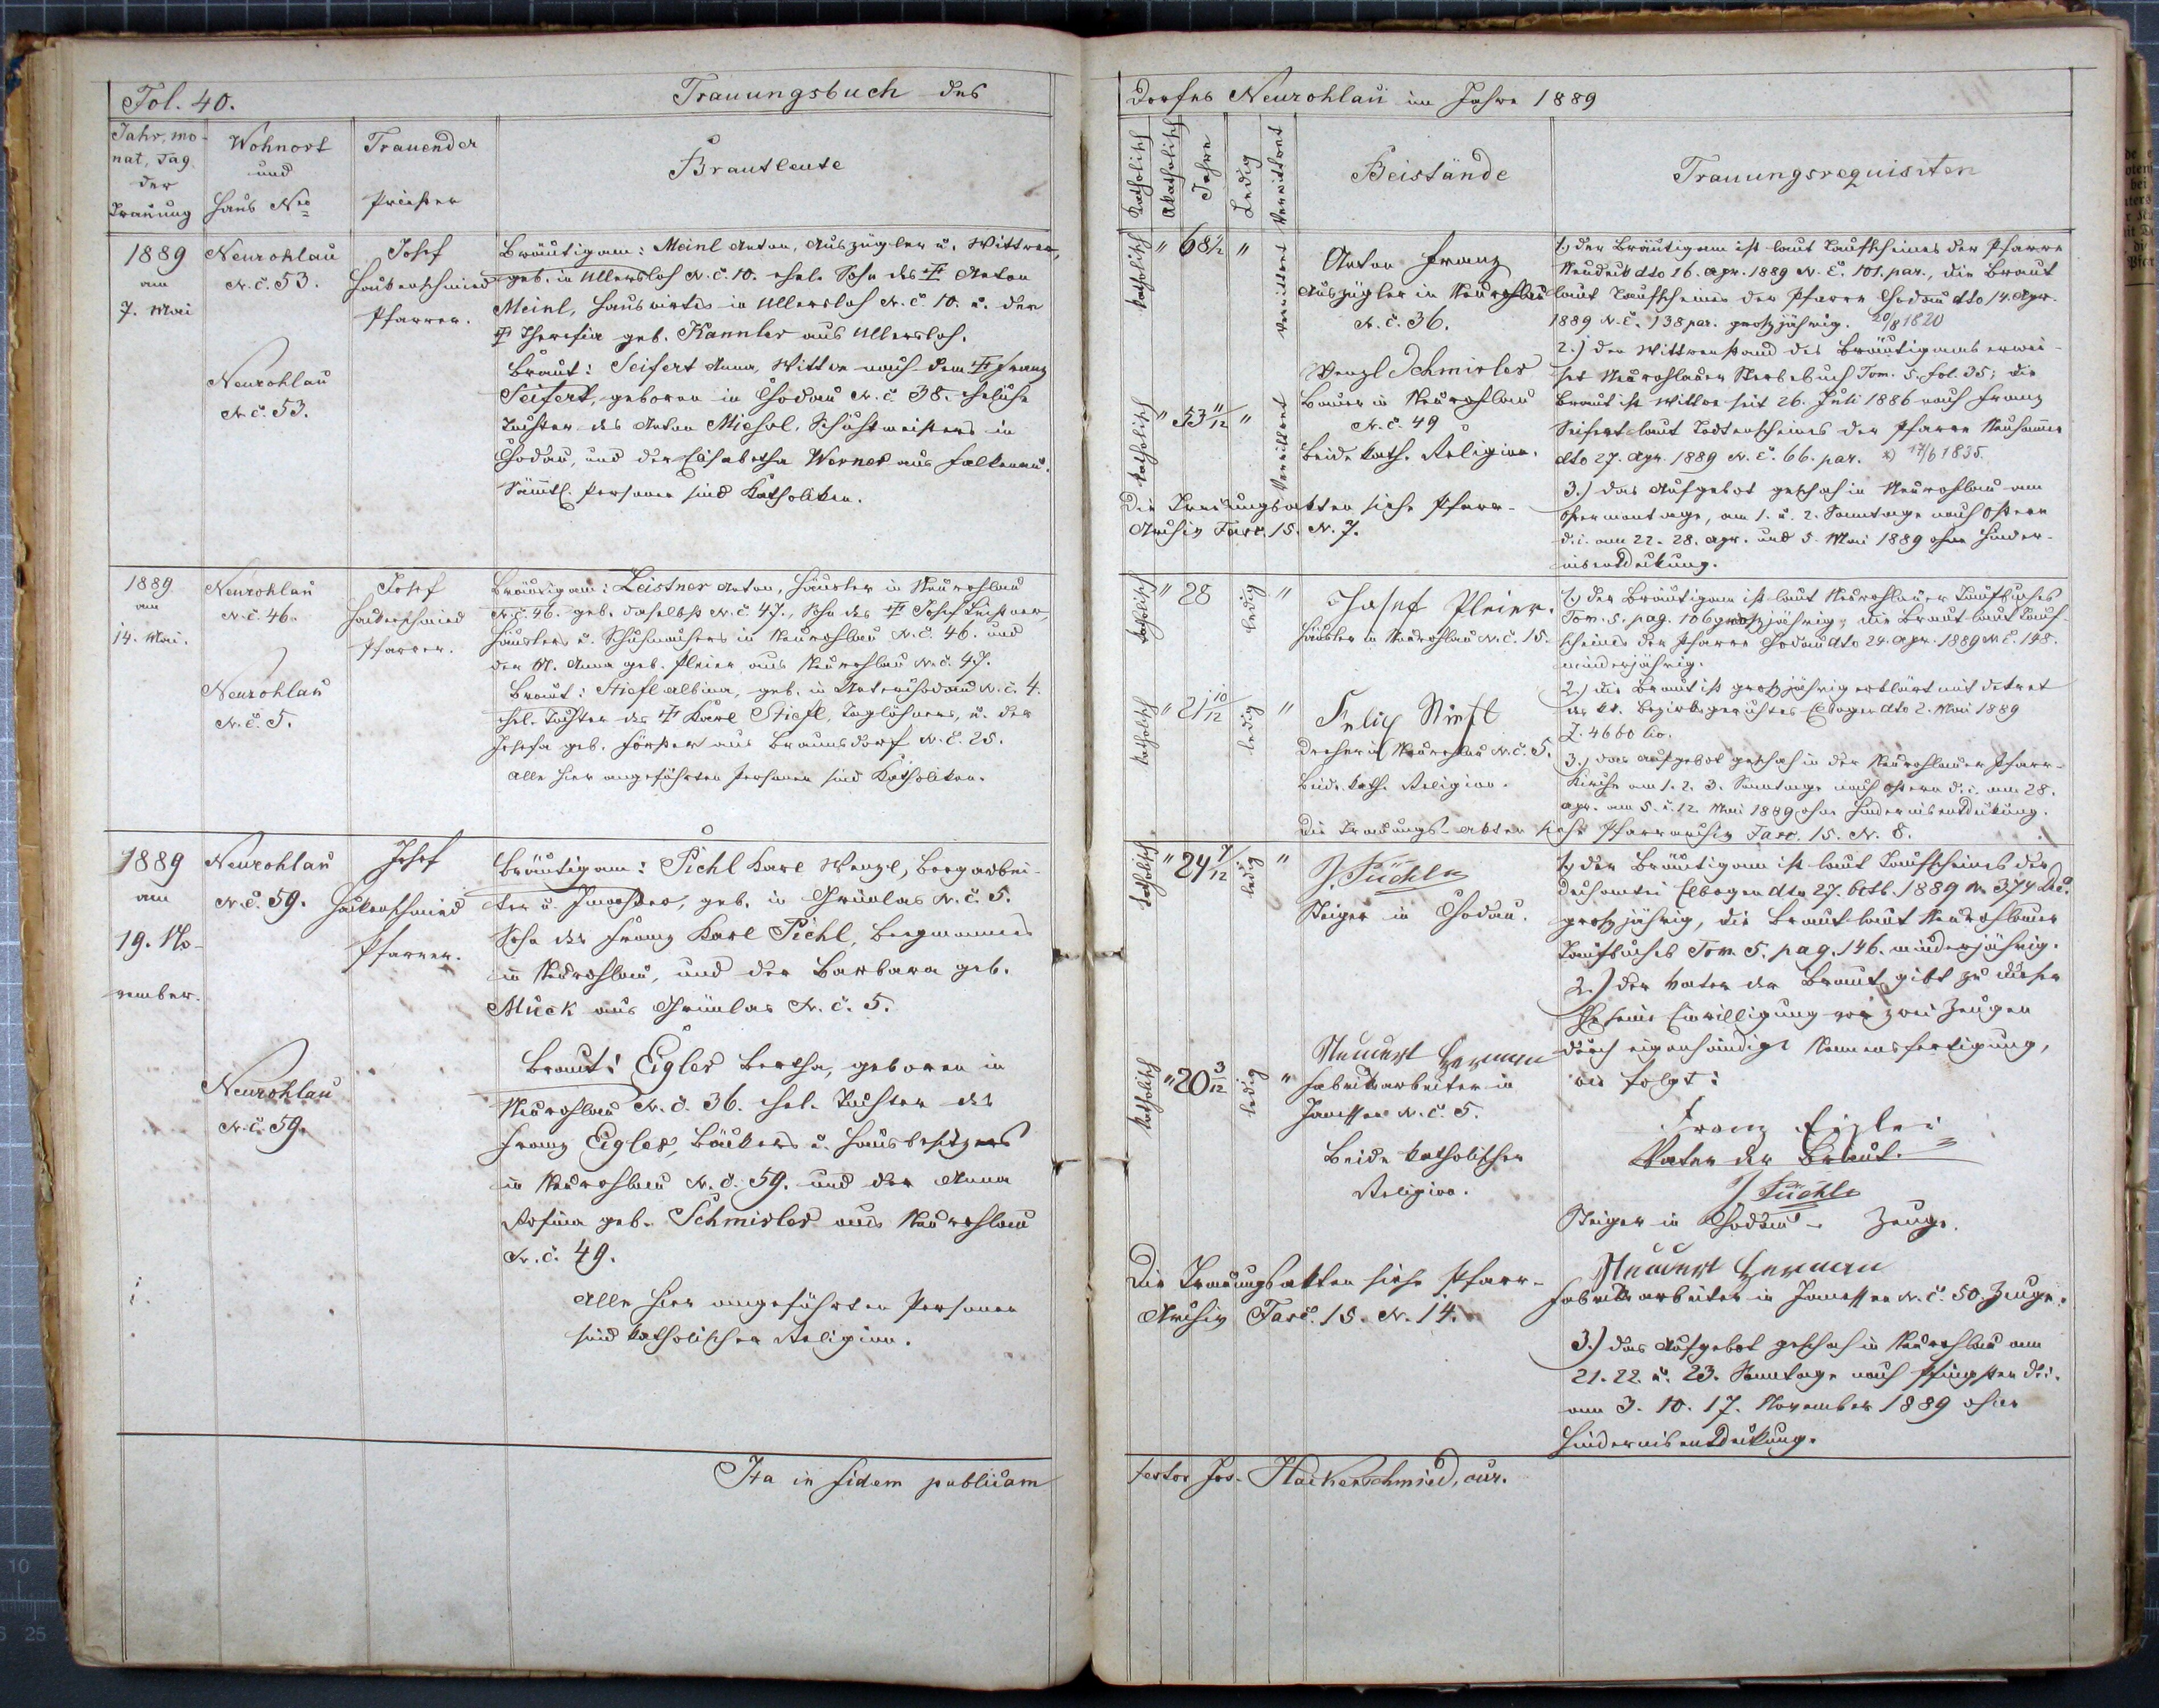 Fol. 40.
Trauungsbuch des
Jahr, mo-
nat, Tag
der
Trauung
Wohnort
und
Haus Nro
Trauender
Priester
Brautleute
1889
am
7. Mai
Neurohlau
N.č. 53.
Neurohlau
N.č. 53.
Josef
Hackenschmied
Pfarrer.
Bräutigam: Meinl Anton, Auszügler u. Wittwer,
geb. in Ullersloh N.č. 10. ehel. Sohn des † Anton
Meinl, Hauswirtes in Ullersloh N.č. 10. u. der
† Theresia geb. Kannler aus Ullersloh.
Braut: Seifert Anna, Wittwe nach dem † Franz
Seifert, geboren in Chodau N.č. 38. eheliche
Tochter des Anton Miessl, Schuhmeisters in
Chodau, und der Elisabetha Werner aus Falkenau.
Sämmtl. Personen sind Katholiken.
1889
am
14. Mai.
Neurohlau
N.č. 46.
Neurohlau
N.č. 5.
Josef
Hackenschmied
Pfarrer.
Bräutigam: Leistner Anton, Häusler in Neurohlau
N.č. 46. geb. daselbst N.č. 47., Sohn des † Josef Leistner,
Häuslers u. Schuhmachers in Neurohlau N.č. 46. und
der M. Anna geb. Pleier aus Neurohlau N.č. 47.
Braut: Stiefl Albina, geb. in Unterchodau N.č. 4.
ehel. Tochter des † Karl Stiefl, Taglöhners, u. der
Josefa geb. Förster aus Braunsdorf N.č. 25.
Alle hier angeführten Personen sind Katholiken.
1889
am
19. No-
vember.
Neurohlau
N.č. 59.
Neurohlau
N.č. 59.
Josef
Hackenschmied
Pfarrer.
Bräutigam: Pichl Karl Wenzl, Bergarbei-
ter u. Inwohner, geb. in Grünlas N.č. 5.
Sohn des Franz Karl Pichl, Bergmannes
in Neurohlau, und der Barbara geb.
Muck aus Grünlas N.č. 5.
Braut: Eigler Bertha, geboren in
Neurohlau N.č. 36. ehel. Tochter des
Franz Eigler, Bäckers u. Hausbesitzers
in Neurohlau N.č. 59. und der Anna
Rosina geb. Schmirler aus Neurohlau
N.č. 49.
Alle hier angeführten Personen
sind katholischer Religion.
Ita in fidem publicam
Dorfes Neurohlau im Jahre 1889
Katholisch
Akatholisch
Jahre
Ledig
Verwitwet
Beistände
Trauungsrequisiten
katholisch " 68 1/2 " Verwitwet
katholisch " 53 11/12 " Verwitwet
Anton Franz
Auszügler in Neurohlau
N.č. 36.
Wenzl Schmirler
Bauer in Neurohlau
N.č. 49
beide kath. Religion.
Die Trauungsakten siehe Pfarr-
Archiv Fasc. 15. N. 7.
1.) Der Bräutigam ist laut Taufscheines der Pfarre
Neudek dto 16. Apr. 1889 N.E. 101. par., die Braut
laut Taufscheines der Pfarre Chodau dto 14. Apr.
1889 N.E. 138 par. großjährig. 20/8 1820
2.) Der Wittwerstand des Bräutigams erwei-
set Neurohlauer Sterbebuch Tom. 5. fol. 35; die
Braut ist Wittwe seit 26. Juli 1886 nach Franz
Seifert laut Todtenscheines der Pfarre
dto 27. Apr. 1889 N.E. 66. par. *) 17/6 1835.
3.) Das Aufgebot geschah in Neurohlau am
Ostermontage, am 1. u. 2. Sonntage nach Ostern
d.i. am 22. 28. Apr. und 5. Mai 1889 ohne Hinder-
nisentdeckung.
katholisch " 28 ledig "
katholisch " 21 10/12 ledig "
Josef Pleier.
Häusler in Neurohlau N.č. 15.
Felix Stiefl
Dreher in Neurohlau N.č. 5.
beide kath. Religion.
Die Trauungs-akten siehe Pfarrarchiv Fasc. 15. N. 8.
1.) Der Bräutigam ist laut Neurohlauer Taufbuches
Tom. 5. pag. 106 großjährig; die Braut laut Tauf-
scheines der Pfarre Chodau dto 24. Apr. 1889 N.E. 148.
minderjährig.
2.) Die Braut ist großjährig erklärt mit Dekret
des kk. Bezirksgerichtes Elbogen dto 2. Mai 1889
Z. 4660 civ.
3.) Das Aufgebot geschah in der Neurohlauer Pfarr-
Kirche am 1. 2. 3. Sonntage nach Ostern d.i. am 28.
Apr. am 5. u. 12. Mai 1889 ohne Hindernisentdeckung.
katholisch " 24 7/12 ledig "
katholisch " 20 3/12 ledig "
J. Püchl
Steiger in Chodau.
Neuvert Herman
Fabriksarbeiter in
Janessen N.č. 5.
beide katholischer
Religion.
Die Trauungsakten siehe Pfarr-
Archiv Fasc. 15. N. 14.
1.) Der Bräutigam ist laut Taufscheines der
Dechantei Elbogen dto 27. Octb. 1889 N. 374
großjährig, die Braut laut Neurohlauer
Taufbuches Tom. 5. pag. 146. minderjährig.
2.) Der Vater der Braut gibt zu dieser
Ehe seine Einwilligung vor zwei Zeugen
durch eigenhändige Namensfertigung,
wie folgt:
Franz Eigler
Vater der Braut.
J. Püchl
Steiger in Chodau - Zeuge.
Neuvert Herman
Fabriksarbeiter in Janessen N.č. 50. Zeuge.
3.) Das Aufgebot geschah in Neurohlau am
21. 22. u. 23. Sonntage nach Pfingsten d.i.
am 3. 10. 17. November 1889 ohne
Hindernisentdeckung.
testor Jos. Hackenschmied, cur.